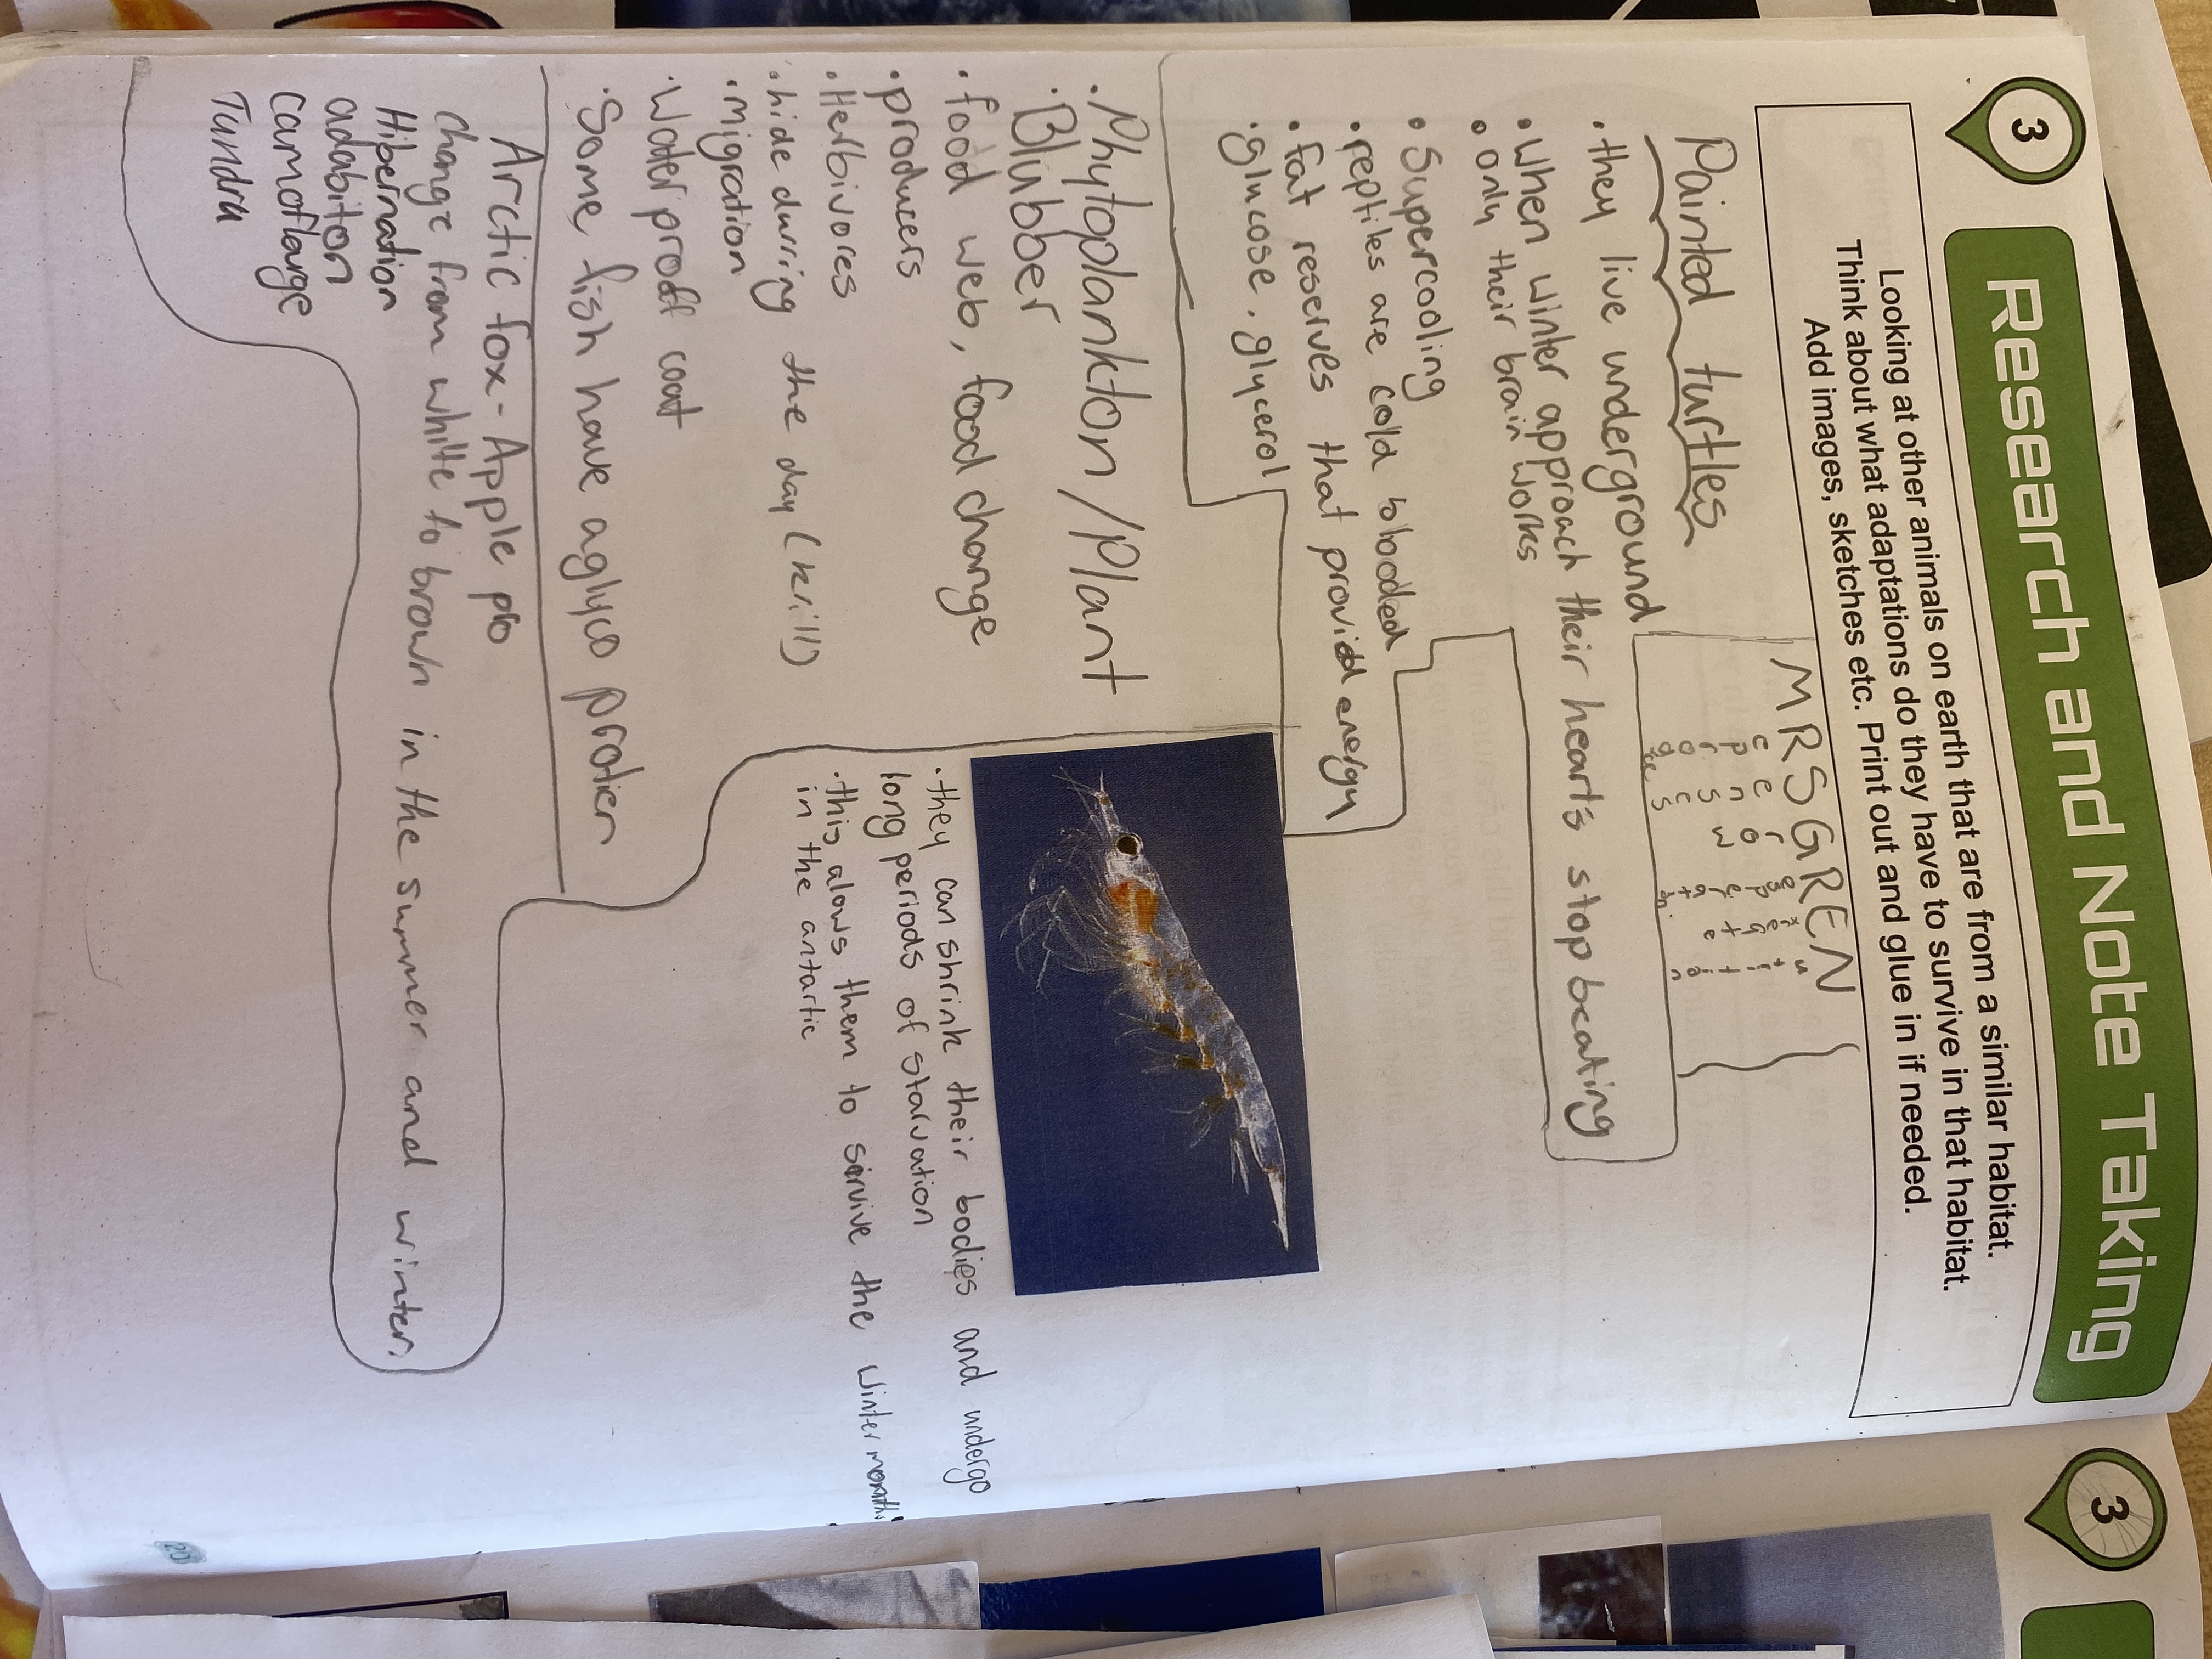 3
Research and Note Taking
Looking at other animals on earth that are from a similar habitat.
Think about what adaptations do they have to survive in that habitat.
Add images, sketches etc. Print out and glue in if needed.
MRSGREN
Painted turtles
• they live underground
• When winter approach their hearts stop beating
• only their brain works
• Supercooling
• reptiles are cold blooded
• fat reserves that provide energy
• glucose, glycerol
• Phytoplankton / Plant
• Blubber
• food web, food change
• producers
• Herbivores
• hide during the day (krill)
• migration
• Water proff coat
• Some fish have aglyco protien
• they can shrink their bodies and undergo
long periods of starvation
• this alows them to servive the winter months
in the antartic
Arctic fox - Apple
change from white to brown in the summer and winter
Hibernation
adabiton
camoflauge
Tundra
20
3